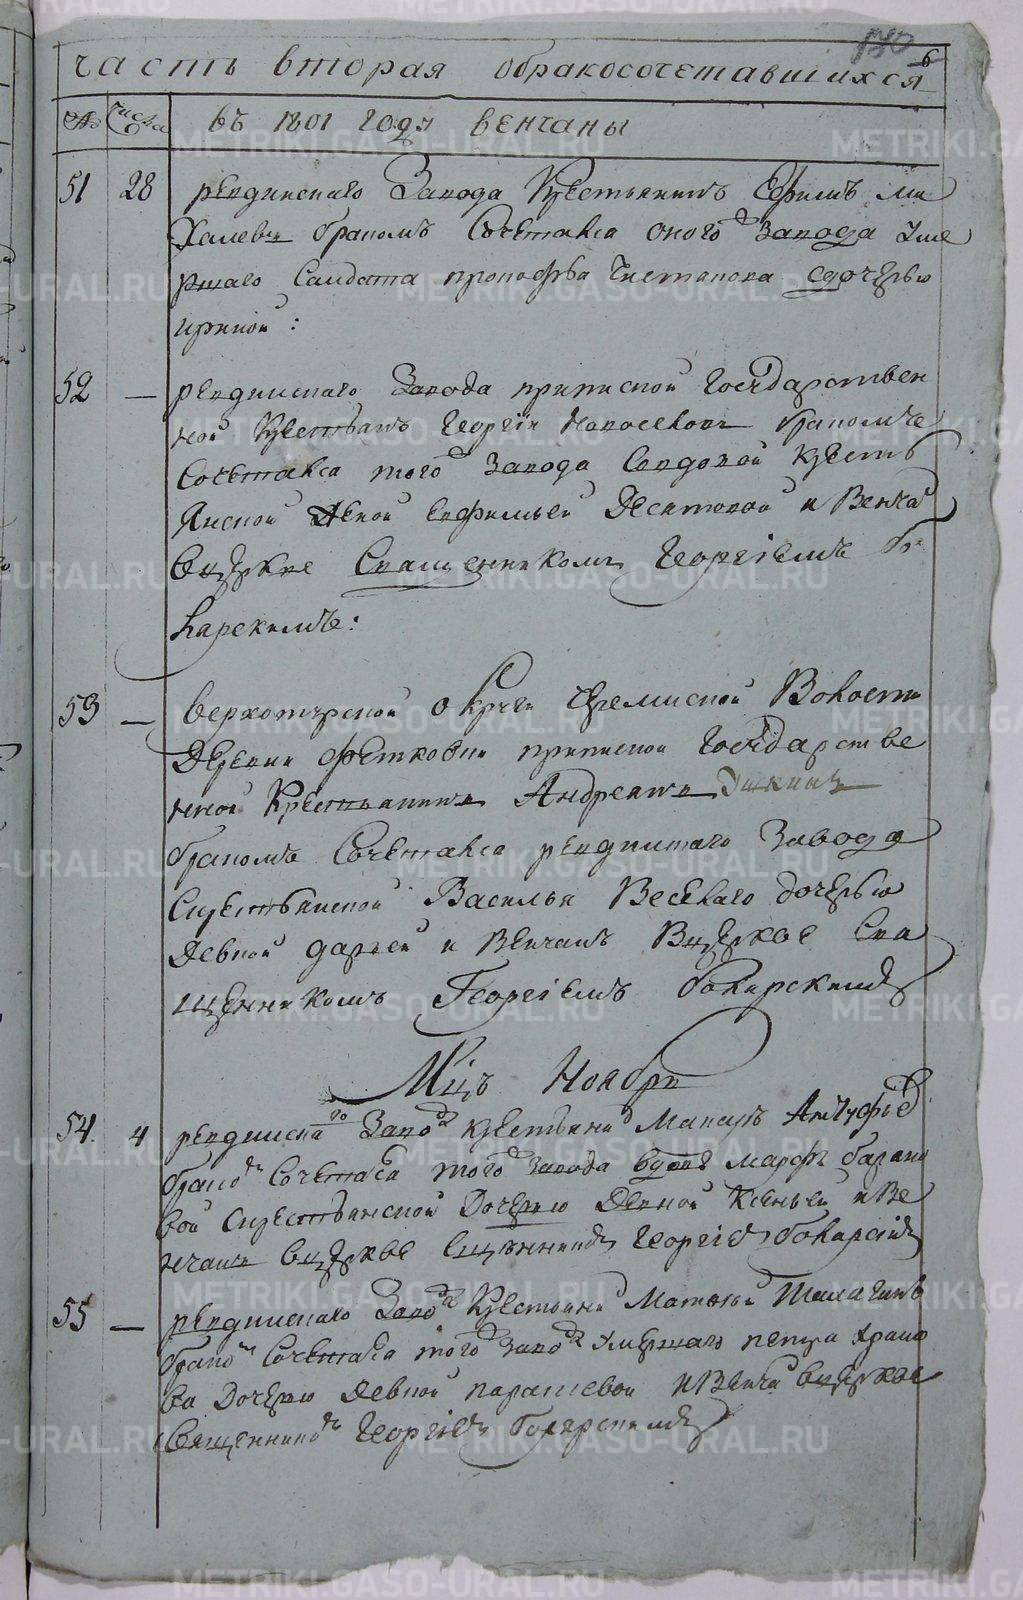 130
6
часть вторая обракосочетавшихся
№ числа въ 1801 году венчаны
51 28 ревдинскаго Завода Крестьянинъ Ефимъ Ми
халевъ бракомъ Сочетался оного завода Уме
ршаго Салдата прокофья Чистапова сдочерью
ириной:
52 — ревдинскаго Завода приписной Государствен
ной Крестьянъ Георгiй бракомъ
Сочетался того завода вдовой Кресть
Янской Женой ефимьей Десятовой и Венча
вцеркве Священникомъ Георгiемъ бо
ларскимъ:
53 — верхотурской округи Волости
Деревни приписной Государстве
нной Крестьянинъ Андреянъ
бракомъ Сочетался ревдинскаго Завода
Скрестьянской Василья Веселаго дочерью
Девкой дарьей и Венчанъ Вцеркве Свя
щенникомъ Георгiемъ боларскимъ
Мцъ Ноября
54. 4 ревдинскаго Завода Крестьянинъ Макаръ
бракомъ Сочетался того завода марфы барано
вой Скрестьянской Дочерью Девкой Ксеньей и Ве
нчанъ вцеркве Священникомъ Георгiемъ боларскимъ
55 — ревдинскаго Завода Крестьянинъ Матвей Шалагинъ
бракомъ Сочетался того завода Умершаго петра храмо
ва Дочерью Девкой парасковой и Венчанъ вцеркве
Священникомъ Георгiемъ болярскимъ
METRIKI.GASO-URAL.RU